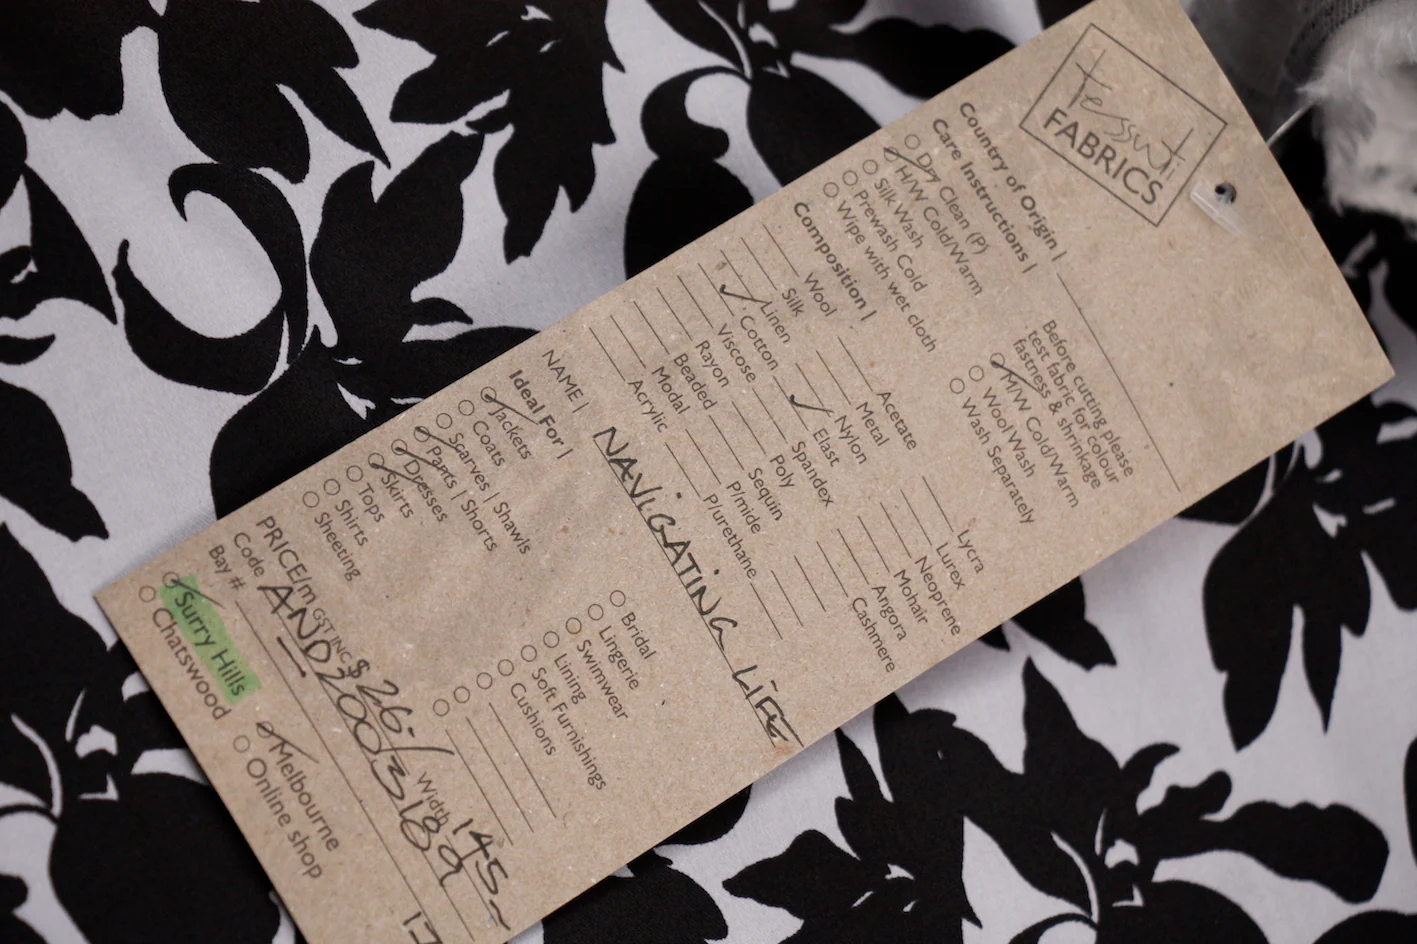 tessuti
FABRICS
Country of Origin |
Care Instructions |
Dry Clean (P)
H/W Cold/Warm
Silk Wash
Prewash Cold
Wipe with wet cloth
Before cutting please
test fabric for colour
fastness & shrinkage
M/W Cold/Warm
Wool Wash
Wash Separately
Composition |
Wool
Silk
Linen
Cotton
Viscose
Rayon
Beaded
Modal
Acrylic
Acetate
Metal
Nylon
Elast
Spandex
Poly
Sequin
P/mide
P/urethane
Lycra
Lurex
Neoprene
Mohair
Angora
Cashmere
NAME | NAVIGATING LIFE
Ideal For |
Jackets
Coats
Scarves | Shawls
Pants | Shorts
Dresses
Skirts
Tops
Shirts
Sheeting
Bridal
Lingerie
Swimwear
Lining
Soft Furnishings
Cushions
PRICE/m GST INC $ 26.- / Width 145
Code AND2003189
Bay # 
Surry Hills
Chatswood
Melbourne
Online shop